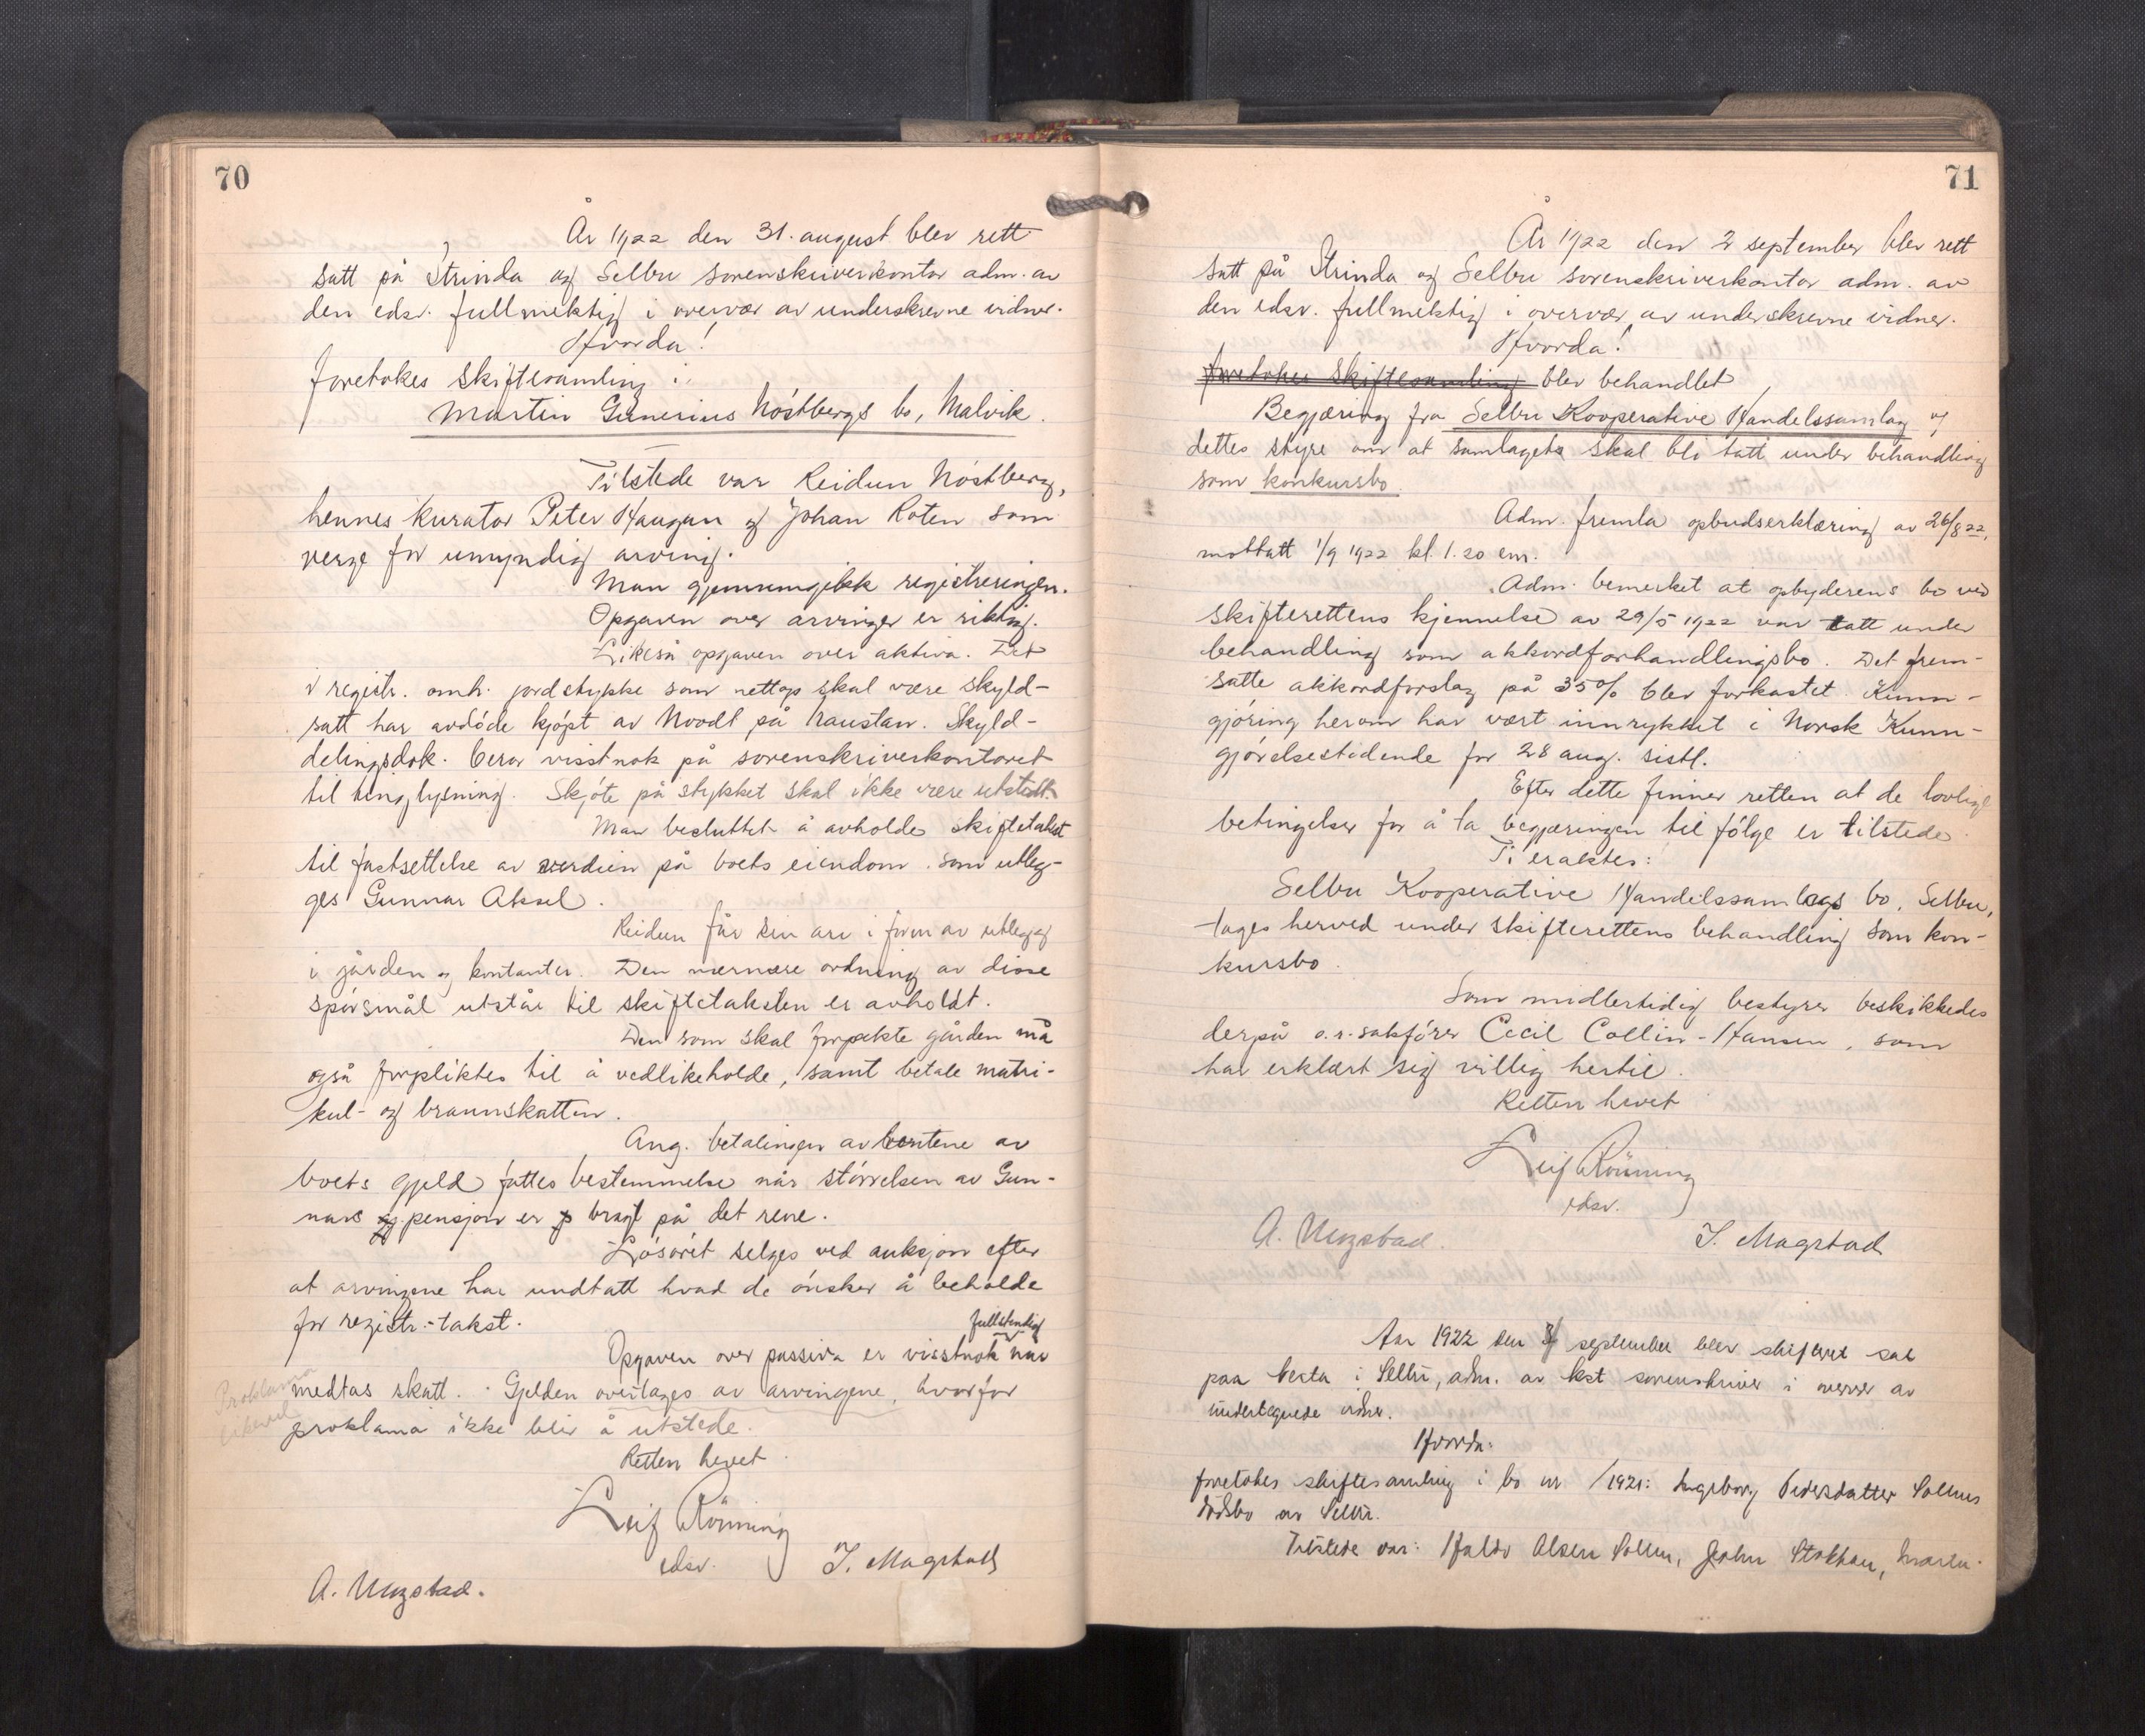 70
År 1922 den 31. august blev rett
satt på Strinda og Selbu sorenskriverkontor adm. av
den edsv. fullmektig i overvær av underskrevne vidner.
Hvorda!
foretokes skiftesamling i:
Martin Gunerius Nóstbergs bo, Malvik.
Tilstede var Reidun Nóstberg,
hennes kurator Peter Haugan og Johan Roten som
verge for umyndig arving.
Man gjennemgikk registreringen.
Opgaven over arvinger er riktig.
Likeså opgaven over aktiva. Det
i registr. omh. jordstykke som nettop skal være skyld-
satt har avdóde kjópt av Noodt på Ranstan. Skyld-
delingsdok. beror visstnok på sorenskriverkontoret
til tinglysning. Skjóte på stykket skal ikke være utstedt.
Man besluttet å avholde skiftetakst
til fastsettelse av verdien på boets eiendom som utleg-
ges Gunnar Aksel.
Reidun får sin arv i form av utlegg
i gården og kontanter. Den nærmere ordning av disse
spórsmål utstår til skiftetaksten er avholdt.
Den som skal forpakte gården må
også forpliktes til å vedlikeholde, samt betale matri-
kul- og brannskatten.
Ang. betalingen av rentene av
boets gjeld fattes bestemmelse når stórrelsen av Gun-
nars pensjon er bragt på det rene.
Lósóret selges ved auksjon efter
at arvingene har undtatt hvad de ónsker å beholde
for registr.-takst.
fullstendig
Opgaven over passiva er visstnok når
medtas skatt. Gjelden overtages av arvingene, hvorfor
Proklama
proklama ikke blir å utstede.
Retten hevet.
Leif Rönning
edsv.
T. Magstad
A. Ungstad.
71
År 1922 den 2 september blev rett
satt på Strinda og Selbu sorenskriverkontor adm. av
den edsv. fullmektig i overvær av underskrevne vidner.
Hvorda!
foretokes skiftesamling blev behandlet
Begjæring fra Selbu Kooperative Handelssamlag og
dettes styre om at samlagets skal bli tatt under behandling
som konkursbo.
Adm. fremla opbudserklæring av 26/8 22,
mottatt 1/9 1922 kl. 1.20 em.
Adm. bemerket at opbyderens bo ved
skifterettens kjennelse av 29/5 1922 var tatt under
behandling som akkordforhandlingsbo. Det frem-
satte akkordforslag på 35% blev forkastet. Kunn-
gjóring herom har vært innrykket i Norsk Kunn-
gjórelsestidende for 28 aug. sistl.
Efter dette finner retten at de lovlige
betingelser for å ta begjæringen til fólge er tilstede.
Ti eraktes:
Selbu Kooperative Handelssamlags bo, Selbu,
tages herved under skifterettens behandling som kon-
kursbo.
Som midlertidig bestyrer beskikkedes
derpå o.r.sakfórer Cecil Collin-Hansen, som
har erklært sig villig hertil.
Retten hevet
Leif Rönning
edsv.
A. Ungstad.
T. Magstad
Aar 1922 den september blev skifteret sat
paa Nesta i Selbu, adm. av kst sorenskriver i overvær av
undertegnede vidner.
Hvorda:
foretokes skiftesamling i bo nr /1921: Ingeborg Pedersdatter Sollius
dödsbo av Selbu.
Tilstede var: Haldo Olsen Sollin, John Stokkan,